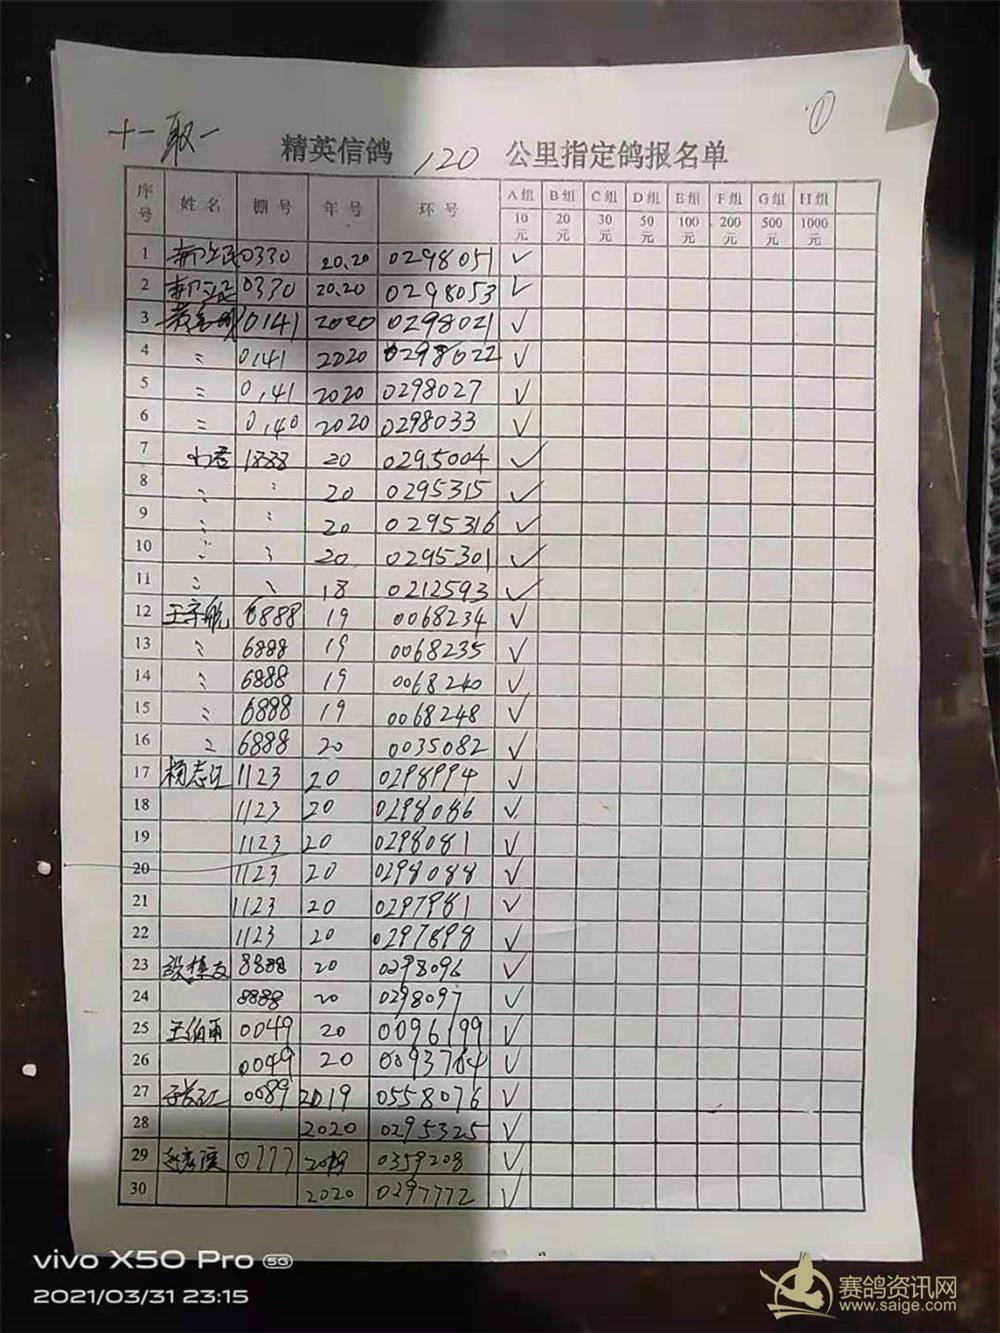 十一取一
①
精英信鸽 120 公里指定鸽报名单
序号 姓名 棚号 年号 环号 A组 B组 C组 D组 E组 F组 G组 H组
10元 20元 30元 50元 100元 200元 500元 1000元
1 0330 2020 0298051 ✓
2 0330 2020 0298053 ✓
3 0141 2020 0298021 ✓
4 〃 0141 2020 0298022 ✓
5 〃 0141 2020 0298027 ✓
6 〃 0140 2020 0298033 ✓
7 1888 20 0295004 ✓
8 〃 〃 20 0295315 ✓
9 〃 〃 20 0295316 ✓
10 〃 〃 20 0295301 ✓
11 〃 〃 18 0212593 ✓
12 王宇航 6888 19 0068234 ✓
13 〃 6888 19 0068235 ✓
14 〃 6888 19 0068240 ✓
15 〃 6888 19 0068248 ✓
16 〃 6888 20 0035082 ✓
17 1123 20 0298994 ✓
18 1123 20 0298086 ✓
19 1123 20 0298081 ✓
20 1123 20 0298088 ✓
21 1123 20 0297981 ✓
22 1123 20 0297898 ✓
23 8888 20 0298096 ✓
24 8888 20 0298097 ✓
25 王伯雨 0049 20 0096199 ✓
26 0049 20 0093764 ✓
27 0089 2019 0558076 ✓
28 2020 0295325 ✓
29 0777 2019 0359208 ✓
30 2020 0297772 ✓
vivo X50 Pro 5G
2021/03/31 23:15
赛鸽资讯网
www.saige.com